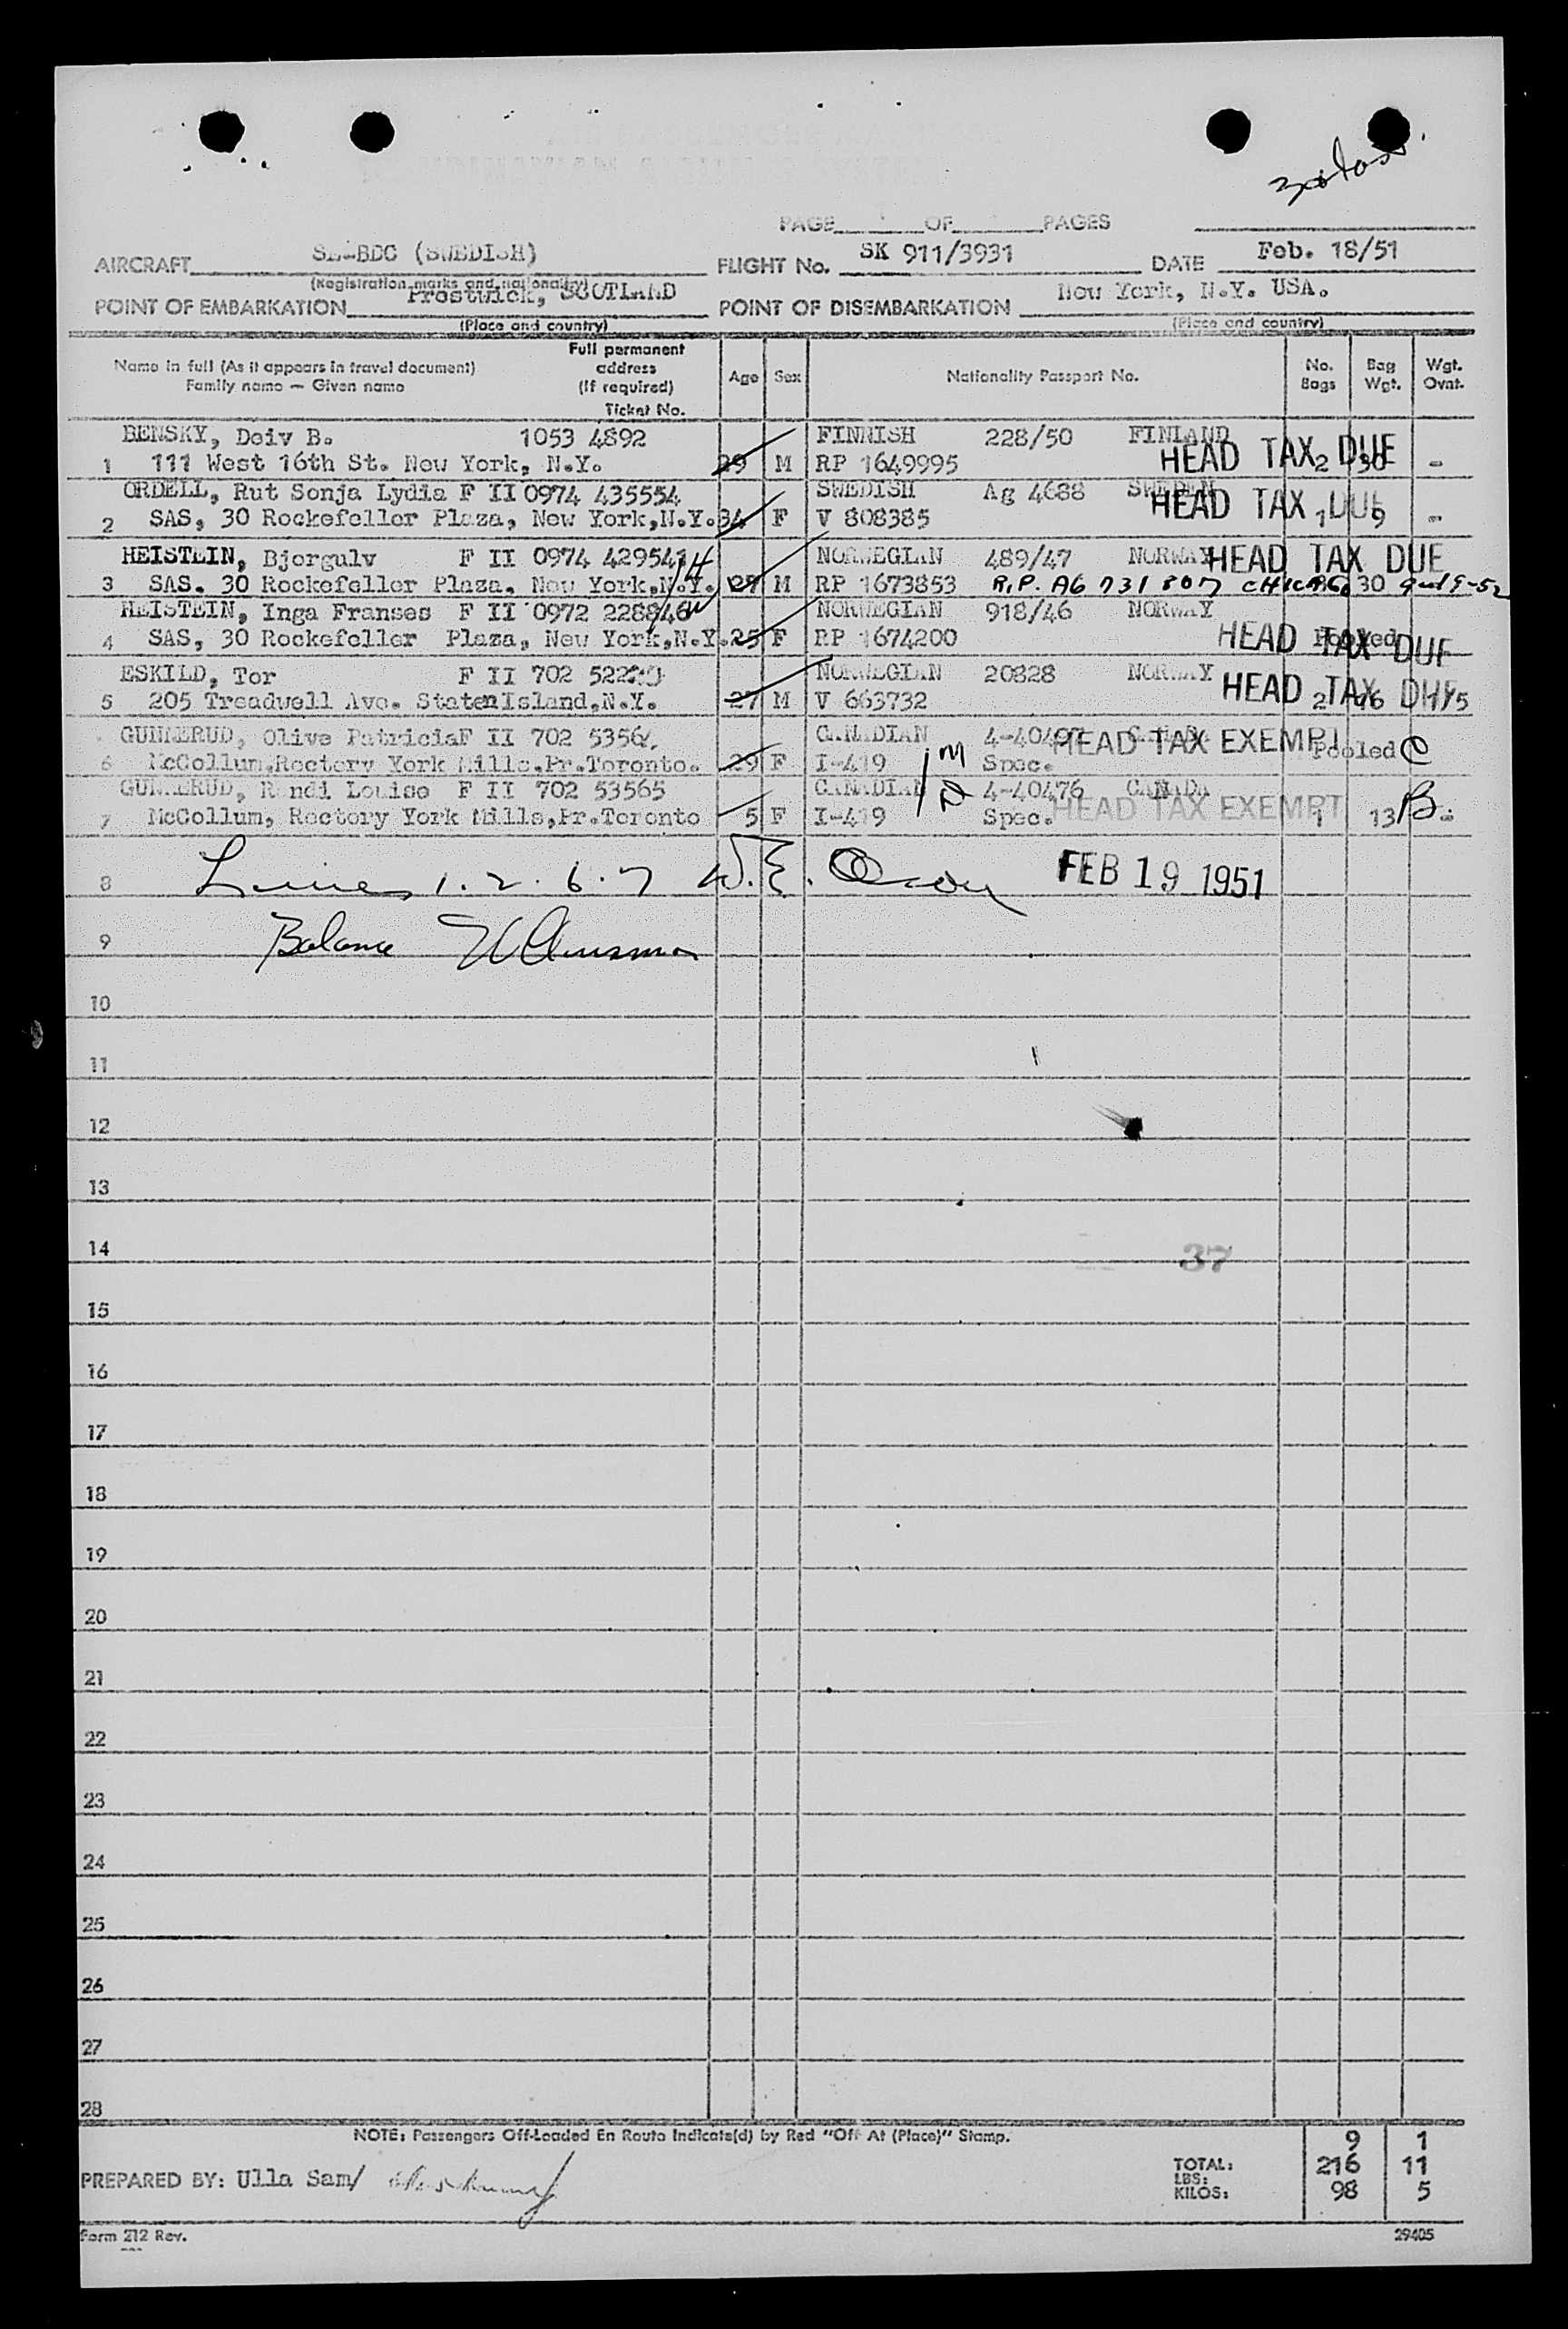 PAGE OF PAGES
AIRCRAFT SE-BDC (SWEDISH) FLIGHT No. SK 911/3931 DATE Feb. 18/51
(Registration marks and nationality)
POINT OF EMBARKATION Prestwick, SCOTLAND POINT OF DISEMBARKATION New York, N.Y. USA.
(Place and country) (Place and country)
Name in full (As it appears in travel document) Family name — Given name Full permanent address (If required) Ticket No. Age Sex Nationality Passport No. No. Bags Bag Wgt. Wgt. Ovnt.
BENSKY, Deiv B. 1053 4892 FINNISH 228/50 FINLAND
1 111 West 16th St. New York, N.Y. 29 M RP 1649995 HEAD TAX DUE 2 30 -
ORDELL, Rut Sonja Lydia F II 0974 435554 SWEDISH Ag 4688 SWEDEN
2 SAS, 30 Rockefeller Plaza, New York,N.Y. 34 F V 808385 HEAD TAX DUE 1 9 -
HEISTEIN, Bjorgulv F II 0974 429541 NORWEGIAN 489/47 NORWAY HEAD TAX DUE
3 SAS. 30 Rockefeller Plaza, New York,N.Y. M RP 1673853 R.P. A6 731 807 CHICAGO 30
HEISTEIN, Inga Franses F II 0972 228846 NORWEGIAN 918/46 NORWAY
4 SAS, 30 Rockefeller Plaza, New York,N.Y. 25 F RP 1674200 HEAD TAX DUE Pooled
ESKILD, Tor F II 702 NORWEGIAN 20828 NORWAY
5 205 Treadwell Ave. Staten Island,N.Y. 27 M V 663732 HEAD TAX DUE 2
GUNNERUD, Olive Patricia F II 702 5356 CANADIAN CANADA
6 McCollum,Rectory York Mills,Pr.Toronto. 29 F I-419 Spec. HEAD TAX EXEMPT Pooled C
GUNNERUD, Randi Louise F II 702 53565 CANADIAN 4-40476 CANADA
7 McCollum, Rectory York Mills,Pr.Toronto 5 F I-419 Spec. HEAD TAX EXEMPT 1 13 B.
8 Lines 1. 2. 6. 7 W.E. FEB 19 1951
9 Balance
10
11
12
13
14 37
15
16
17
18
19
20
21
22
23
24
25
26
27
28
NOTE: Passengers Off-Loaded En Route Indicate(d) by Red "Off At (Place)" Stamp. 9 1
TOTAL:
PREPARED BY: Ulla Sam/ LBS: 216 11
KILOS: 98 5
Form 212 Rev. 29405